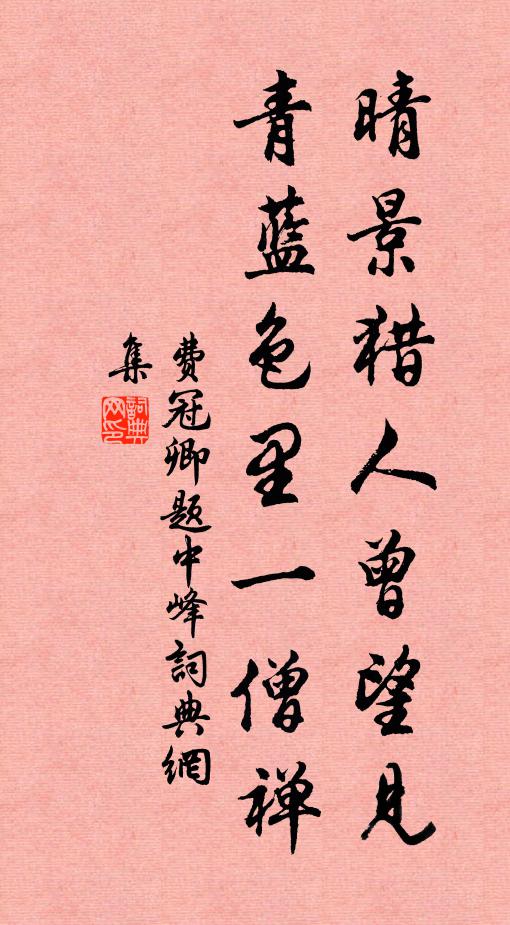 晴景猎人曾望见
青蓝色里一僧禅
费冠卿题中峰词典网
集
词典网印